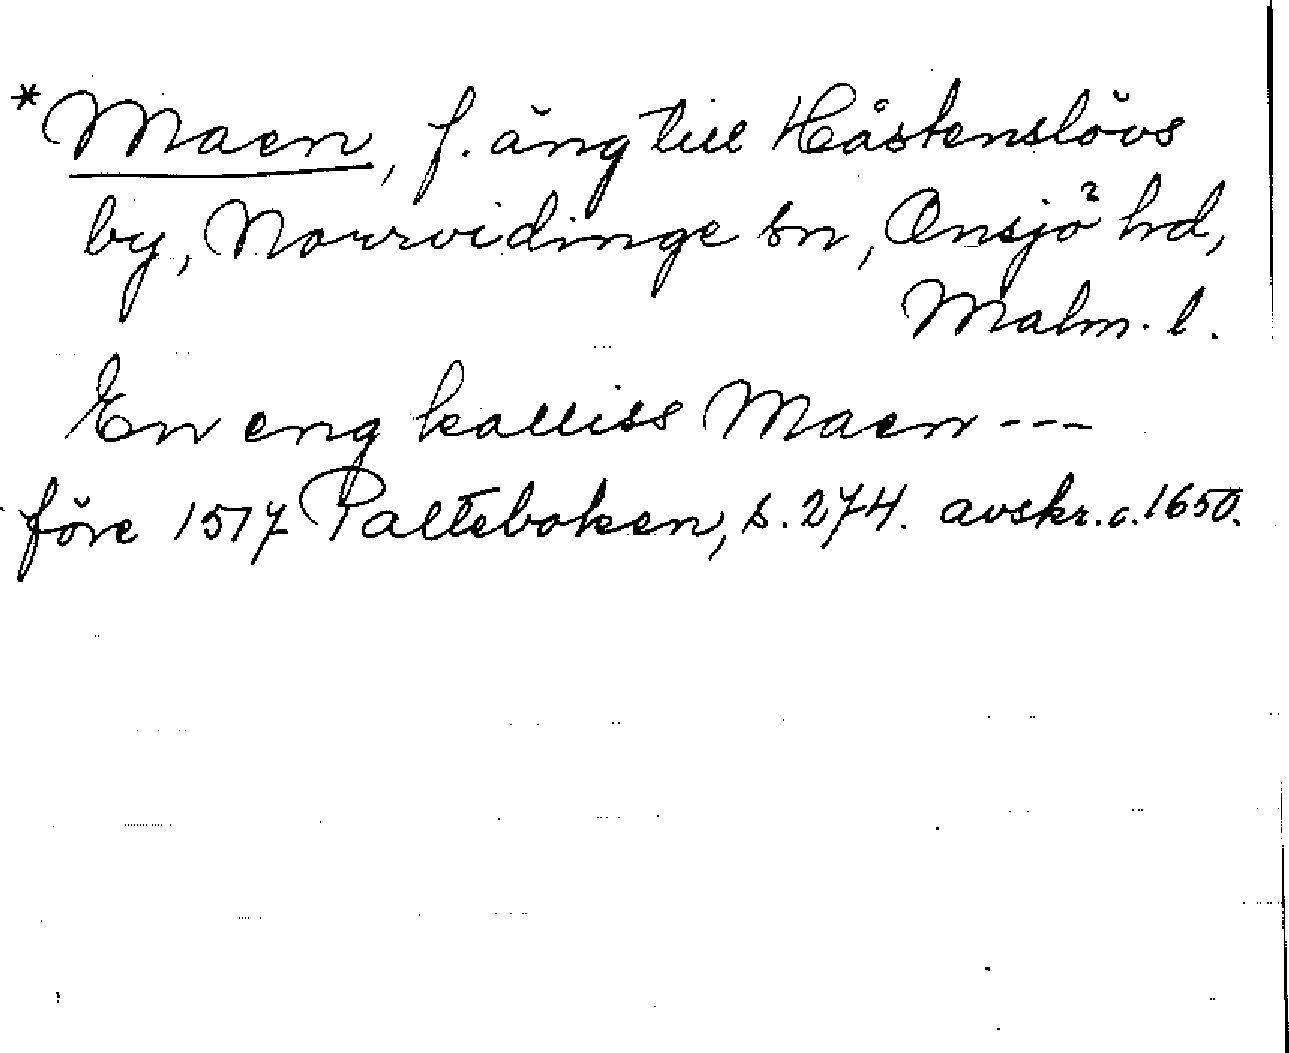 *Maen, f. äng till Håstenslövs
by, Norrvidinge sn, Onsjö hd,
Malm. l.
En eng kalliss Maen ---
före 1517 Palteboken, s. 274. avskr. c. 1650.